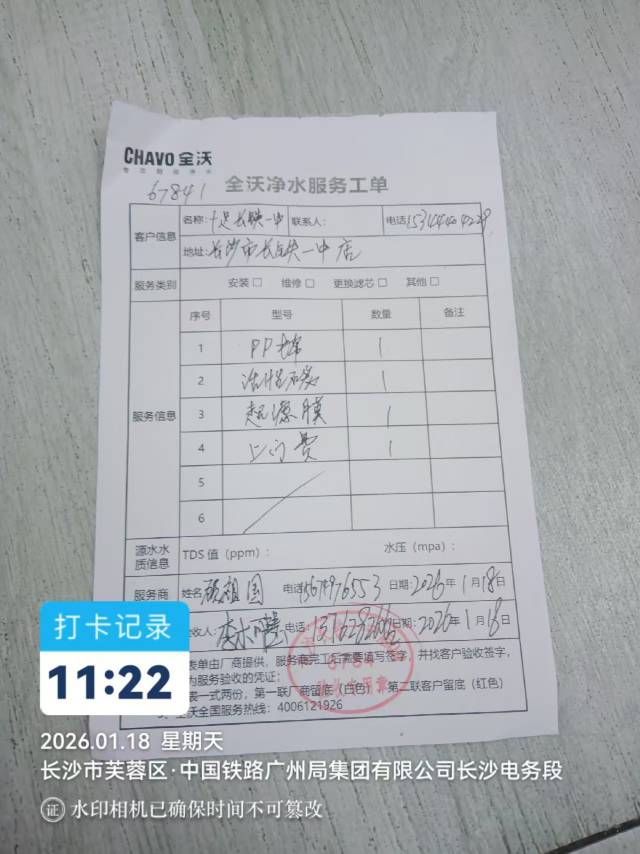 CHAVO 全沃
67841
全沃净水服务工单
客户信息
名称: 十足长铁一中 联系人: 电话
地址: 长沙市长铁一中店
服务类别 安装□ 维修□ 更换滤芯□ 其他□
服务信息
序号 型号 数量 备注
1 PP棉 1
2 活性炭 1
3 超滤膜 1
4 上门费 1
5
6
源水水质信息 TDS 值 (ppm): 水压 (mpa):
服务商 姓名 顾祖国 电话 日期: 2026年1月18日
收人: 电话: 日期: 2026年1月18日
表单由厂商提供，服务商完工后需要填写签字，并找客户验收签字，
为服务验收的凭证;
表一式两份，第一联厂商留底 (白色) 第二联客户留底 (红色)
全沃全国服务热线: 4006121926
打卡记录
11:22
2026.01.18 星期天
长沙市芙蓉区·中国铁路广州局集团有限公司长沙电务段
证 水印相机已确保时间不可篡改